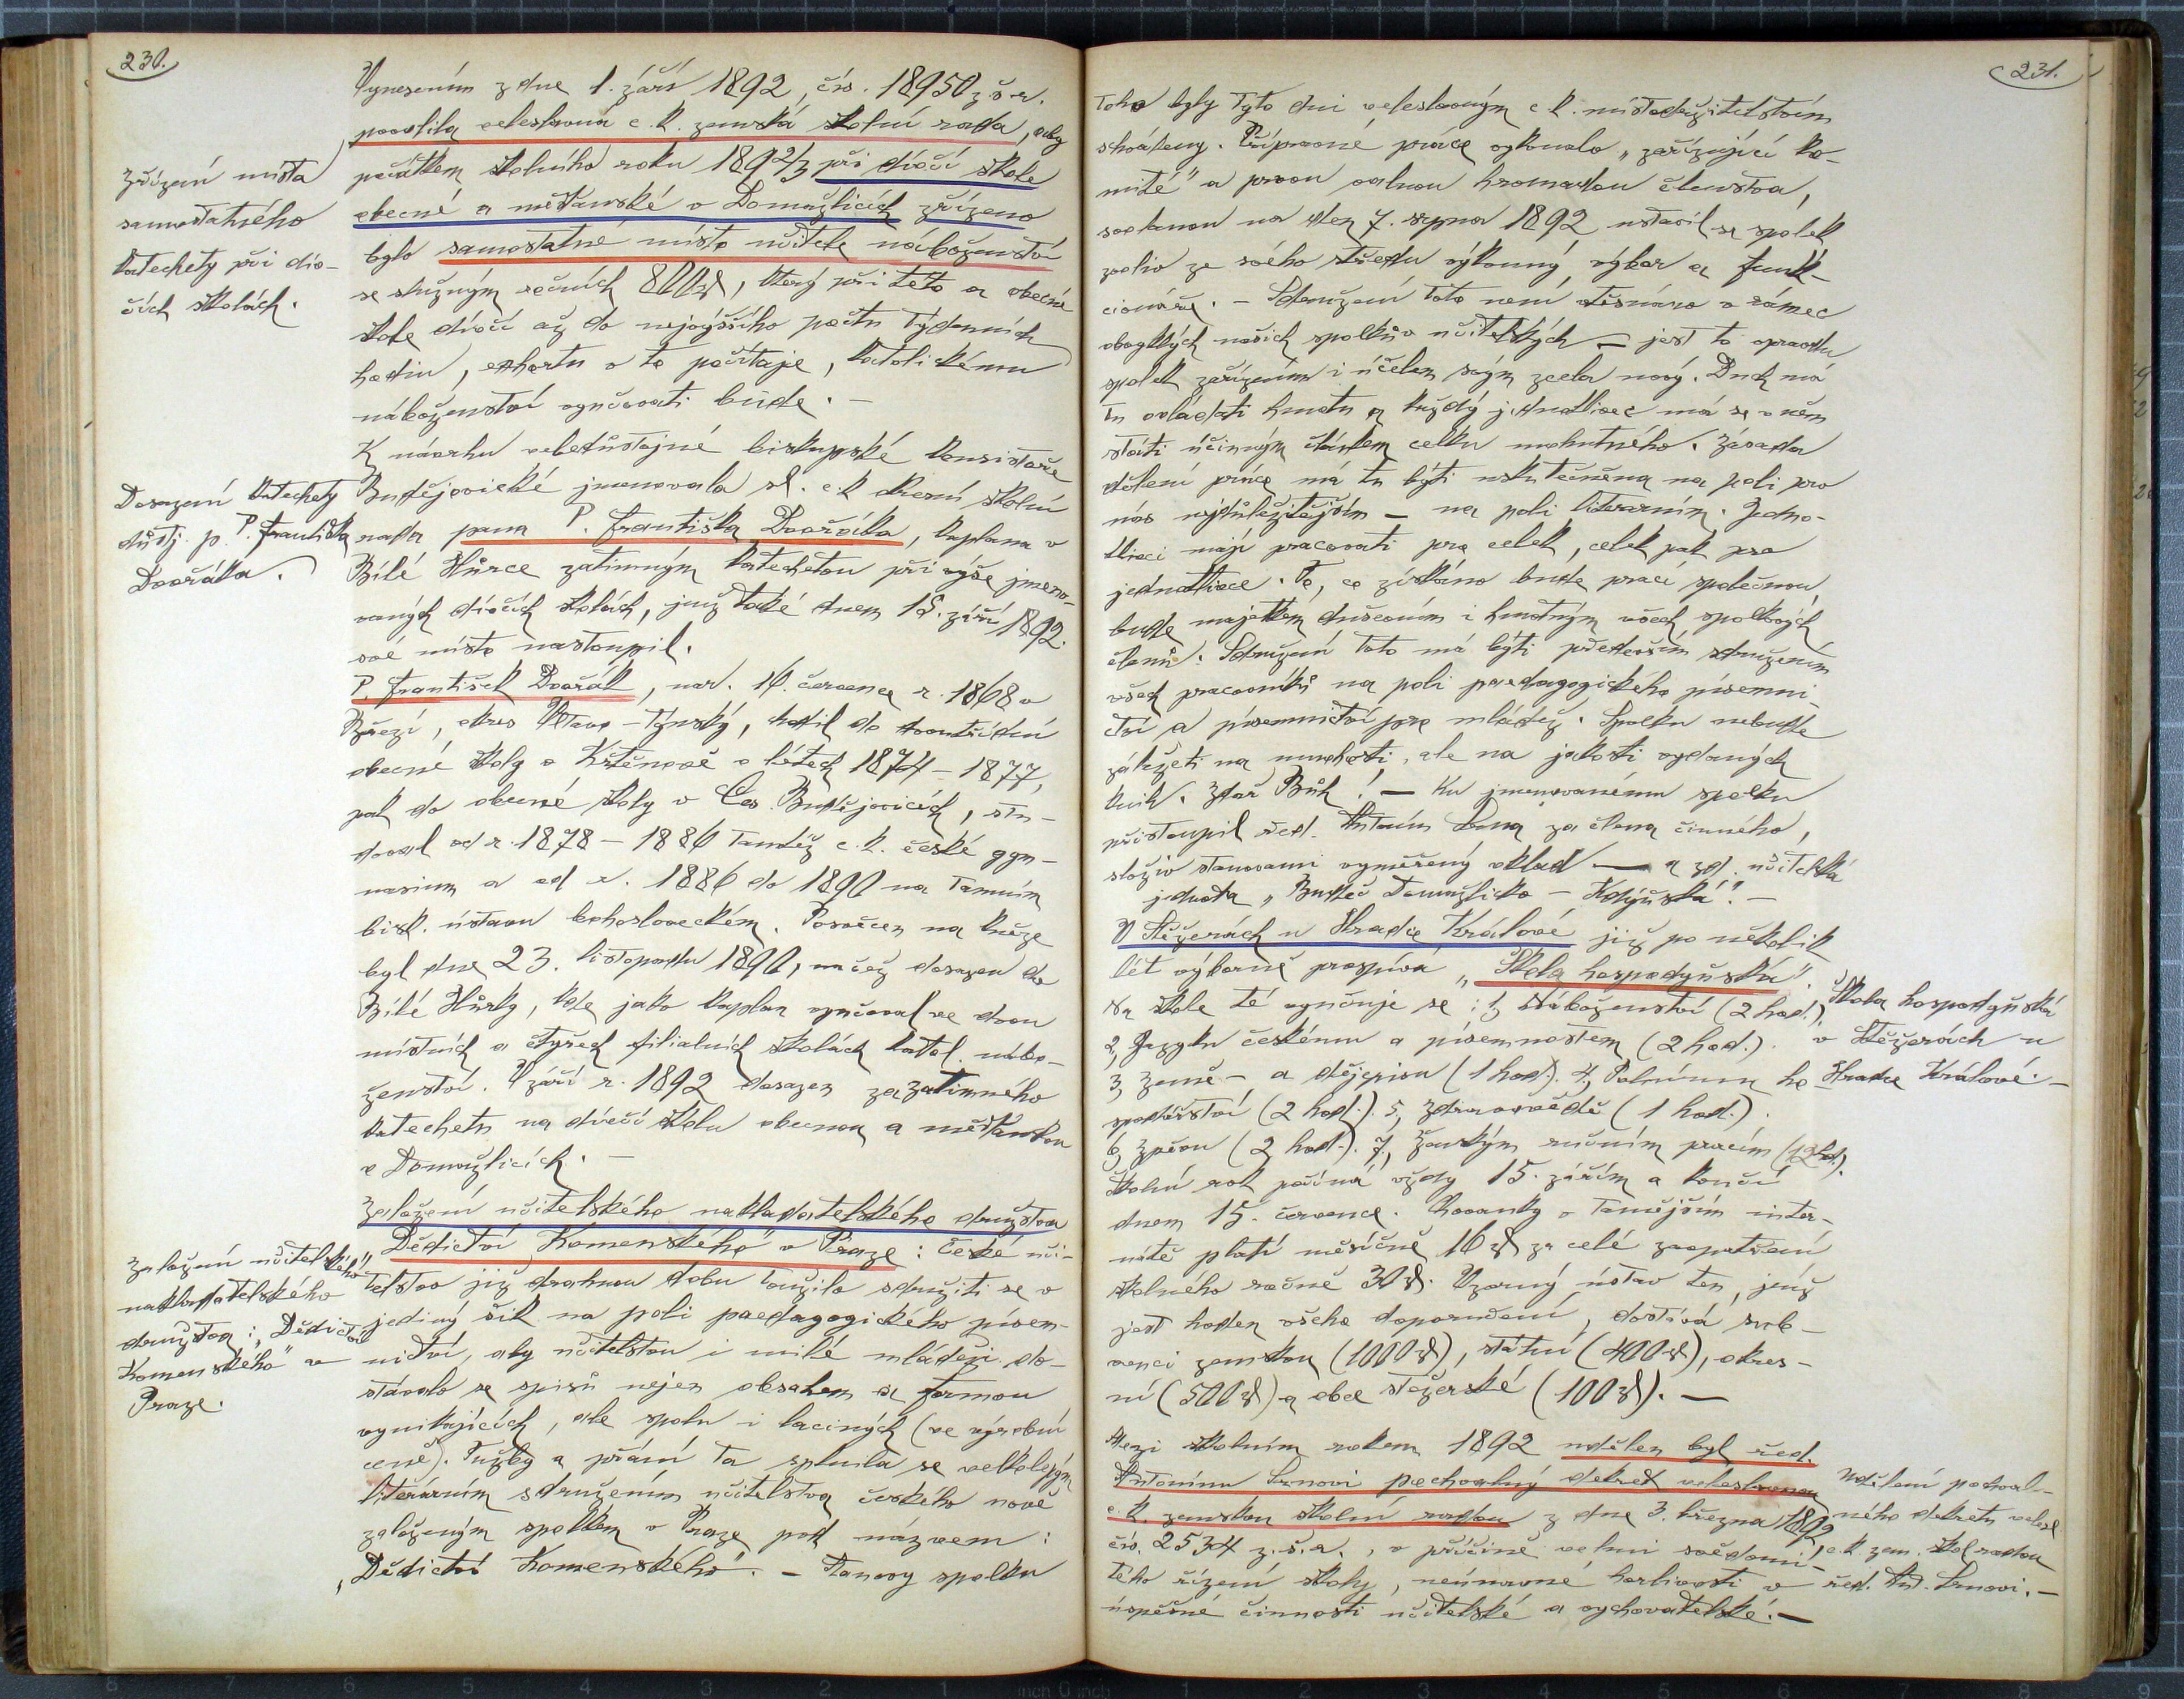 230.
Vynesením z dne 1. září 1892, čís. 18950 z.š.r.
povolila veleslavná c. k. zemská školní rada, aby
Zřízení místa
samostatného
katechety při dív-
čích školách.
počátkem školního roku 1892/3 při dívčí škole
obecné a měšťanské v Domažlicích zřízeno
bylo samostatné místo učitele náboženství
se služným ročních 800 zl, který při této a obecné
škole dívčí až do nejvyššího počtu týdenních
hodin, exhortu v to počítaje, katolickému
náboženství vyučovati bude. —
K návrhu veledůstojné biskupské konsistoře
Dosazení katechety
důstj. p. P. Františka
Dvořáka.
Budějovické jmenovala sl. c. k. okresní školní
rada pana P. Františka Dvořáka, kaplana v
Bílé Hůrce zatimným katechetou při výše jmeno-
vaných dívčích školách, jenž také dnem 15. září 1892.
své místo nastoupil.
P. František Dvořák, nar. 16. července r. 1868 v
Březí, okres Vltavo-Týnský, chodil do dvoutřídní
obecné školy v Křtěnově v létech 1874 – 1877,
pak do obecné školy v Čes. Budějovicích, stu-
doval od r. 1878 – 1886 tamtéž c. k. české gym-
nasium a od r. 1886 do 1890 na tamním
bisk. ústavu bohosloveckém. Posvěcen na kněze
byl dne 23. listopadu 1890, načež dosazen do
Bílé Hůrky, kde jako kaplan vyučoval ve dvou
místních a čtyřech filialních školách katol. nábo-
ženství. V září r. 1892 dosazen za zatimného
katechetu na dívčí školu obecnou a měšťanskou
v Domažlicích. —
Založení učitelského nakladatelského družstva
Založení učitelského
nakladatelského
družstva: „Dědictví
Komenského“ v
Praze.
„Dědictví Komenského“ v Praze: České uči-
telstvo již drahnou dobu toužilo sdružiti se v
jediný šik na poli paedagogického písem-
nictví, aby učitelstvu i milé mládeži do-
stávalo se spisů nejen obsahem a formou
vynikajících, ale spolu i laciných (ve výrobní
ceně). Tužby a přání ta splnila se velkolepým
literárním sdružením učitelstva českého nově
založeným spolkem v Praze pod názvem:
„Dědictví Komenského“. – Stanovy spolku
231.
toho byly tyto dni veleslavným c. k. místodržitelstvím
schváleny. Přípravné práce vykonalo „zařizující ko-
mité“ a prvou valnou hromadou členstva,
svolanou na den 7. srpna 1892 ustavil se spolek
zvoliv ze svého středu výkonný výbor a funk-
cionáře. – Sdružení toto není vtěsnáno v rámec
obvyklých našich spolkův učitelských — jest to opravdu
spolek zařízením i účelem svým zcela nový. Duch má
tu ovládati hmotu a každý jednotlivec má se v něm
státi účinným článkem celku mohutného. Zásada
dělení práce má tu býti uskutečněna na poli pro
nás nejdůležitějším – na poli literárním. Jedno-
tlivci mají pracovati pro celek, celek pak pro
jednotlivce. To, co získáno bude prací společnou,
bude majetkem duševním i hmotným všech spolkových
členů. Sdružení toto má býti především sdružením
všech pracovníků na poli paedagogického písemni-
ctví a písemnictví pro mládež. Spolku nebude
záležeti na mnohosti, ale na jakosti vydaných
knih. Zdař Bůh! — Ku jmenovanému spolku
přistoupil řed. Antonín Srna za člena činného,
složiv stanovami vyměřený vklad — a zdj. učitelská
jednota „Budeč Domažlicko – Kdyňská“. —
V Stěžerách u Hradce Králové již po několik
lét výborně prospívá „Škola hospodyňská“.
Škola hospodyňská
v Stěžerách u
Hradce Králové. –
Na škole té vyučuje se: 1, Náboženství (2 hod.).
2, Jazyku českému a písemnostem (2 hod.).
3, Země- a dějepisu (1 hod.). 4, Polnímu ho-
spodářství (2 hod.). 5, Zdravovědě (1 hod.).
6, Zpěvu (2 hod.). 7, Ženským ručním pracím (12 hd.).
Školní rok počíná vždy 15. zářím a končí
dnem 15. července. Chovanky v tamějším inter-
nátě platí měsíčně 16 zl za celé zaopatření
školného ročně 30 zl. Vzorný ústav ten, jenž
jest hoden všeho doporučení, dostává sub-
venci zemskou (1000 zl), státní (400 zl), okres-
ní (500 zl) a obce stěžerské (100 zl). —
Mezi školním rokem 1892 udělen byl řed.
Antonínu Srnovi pochvalný dekret veleslavnou
Udělení pochval-
ného dekretu velesl.
c. k. zem. škol. radou
řed. Ant. Srnovi. –
c. k. zemskou školní radou z dne 3. března 1892
čís. 2534 z. š. r., v příčině velmi svědomi-
tého řízení školy, neúnavné horlivosti v
úspěšné činnosti učitelské a vychovatelské. —